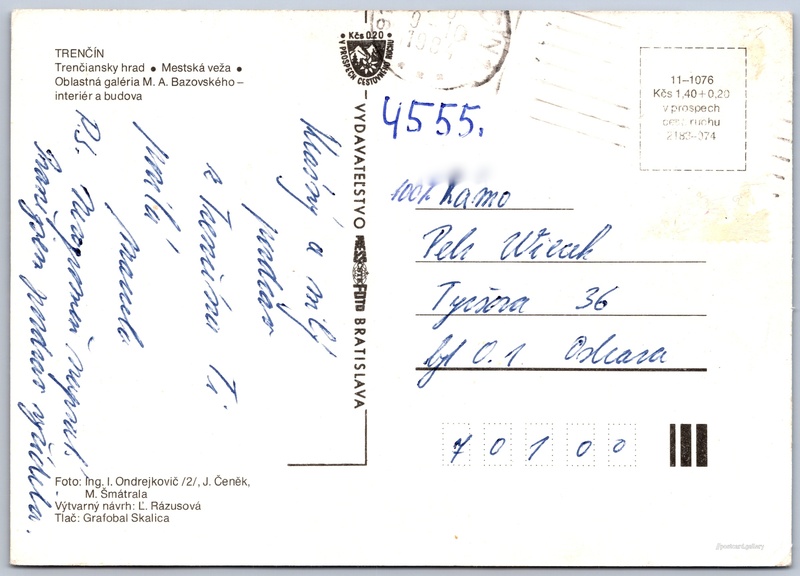 TRENČÍN
Trenčiansky hrad ● Mestská veža ●
Oblastná galéria M. A. Bazovského –
interiér a budova
Krásný a milý
pozdrav
z Trenčína Ti
posílá
P.S. Nezapomeň napsat!
pozdrav vyřídila.
Foto: Ing. I. Ondrejkovič /2/, J. Čeněk,
M. Šmátrala
Výtvarný návrh: Ľ. Rázusová
Tlač: Grafobal Skalica
● Kčs 0.20 ●
V PROSPECH CESTOVNÉHO RUCHU
VYDAVATEĽSTVO PRESSFOTO BRATISLAVA
4555.
11–1076
Kčs 1,40+0,20
v prospech
cest. ruchu
2183-074
100% Kamo
Petr
36
byt č. 1 Ostrava
70100